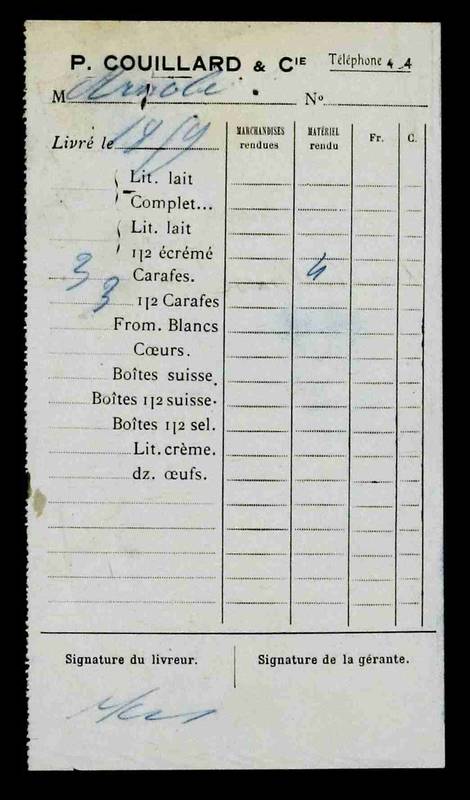 P. COUILLARD & CIE Téléphone 4_4
M Arnobe Nº
Livré le 19/9 MARCHANDISES rendues MATÉRIEL rendu Fr. C.
Lit. lait
Complet...
Lit. lait
1|2 écrémé
3 Carafes. 4
3 1|2 Carafes
From. Blancs
Cœurs.
Boîtes suisse.
Boîtes 1|2 suisse.
Boîtes 1|2 sel.
Lit. crème.
dz. œufs.
Signature du livreur. Signature de la gérante.